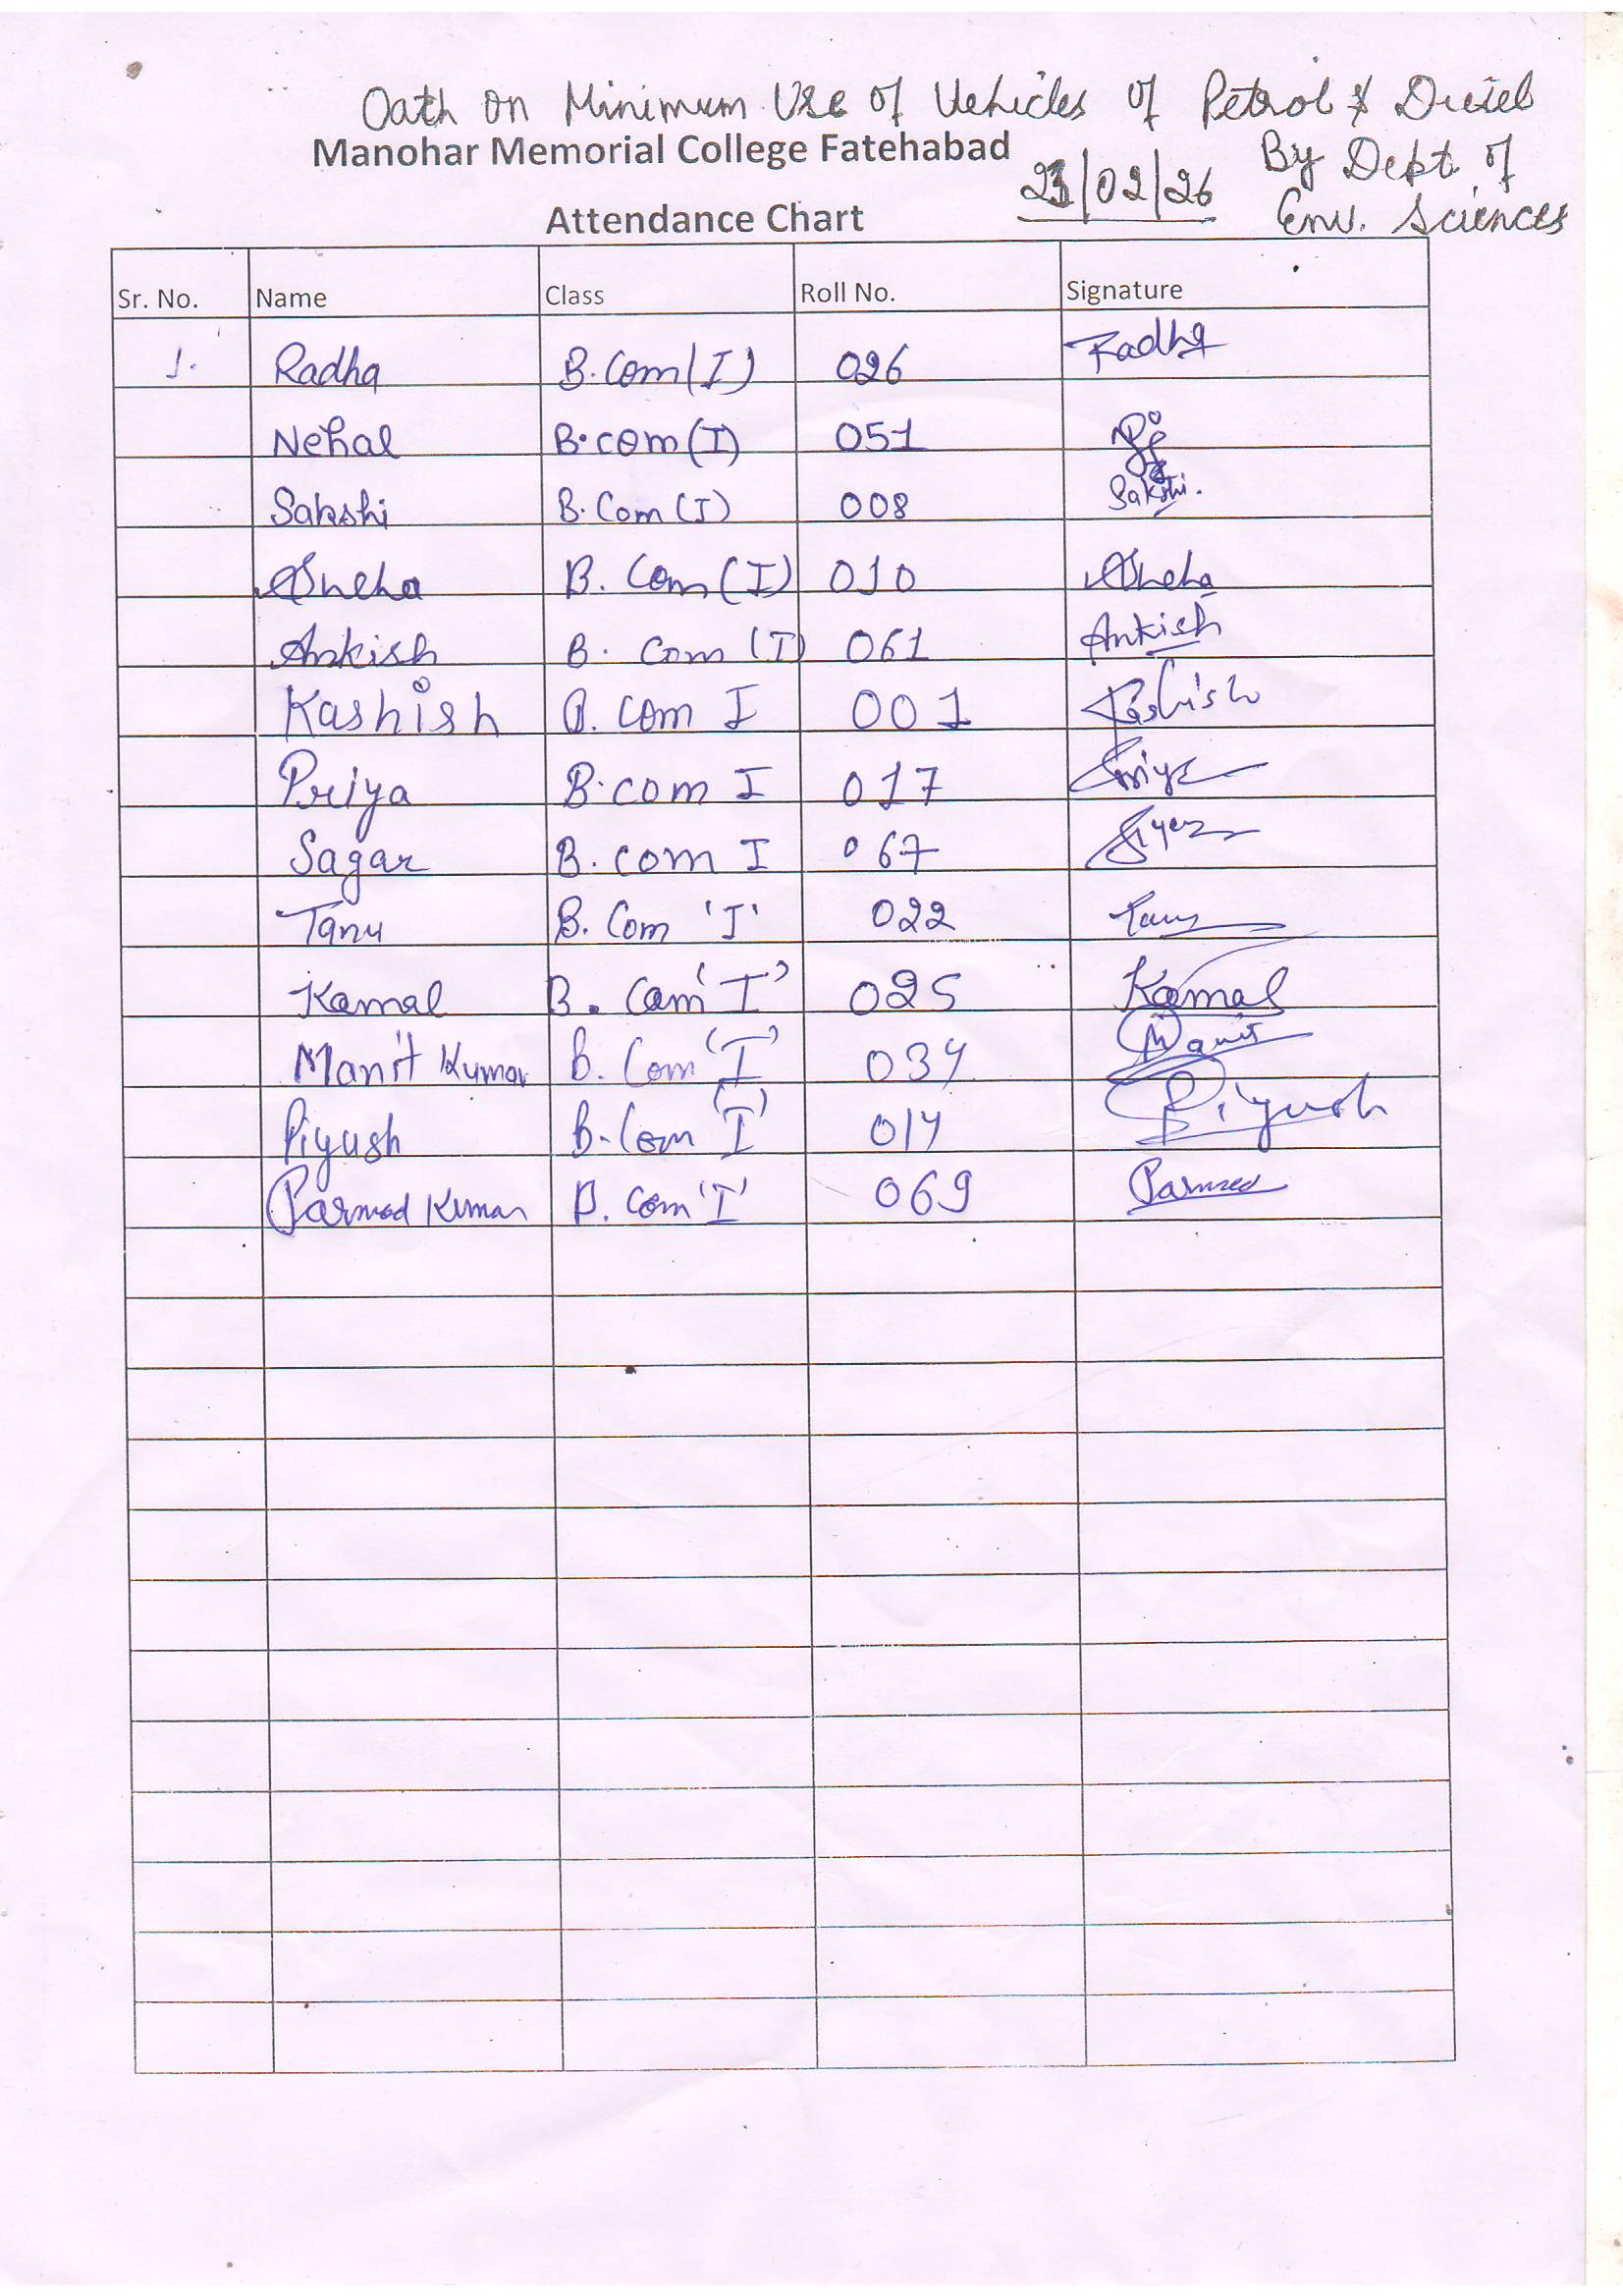 Oath on Minimum Use of Vehicles of Petrol & Diesel
Manohar Memorial College Fatehabad
23/02/26
By Dept. of
Env. Sciences
Attendance Chart
Sr. No. Name Class Roll No. Signature
1. Radha B.Com(I) 026 Radha
Nehal B.com(I) 051
Sakshi B.Com(I) 008 Sakshi.
Sneha B. Com(I) 010 Sneha
Ankish B. Com (I) 061 Ankish
Kashish B. com I 001 Kashish
Priya B.com I 017 Priya
Sagar B.com I 067
Tanu B. Com 'I' 022 Tanu
Kamal B. Com 'I' 025 Kamal
Manit Kumar B. Com 'I' 034 Manit
Piyush B.Com 'I' 014 Piyush
Parmod Kumar B. Com 'I' 069 Parmod